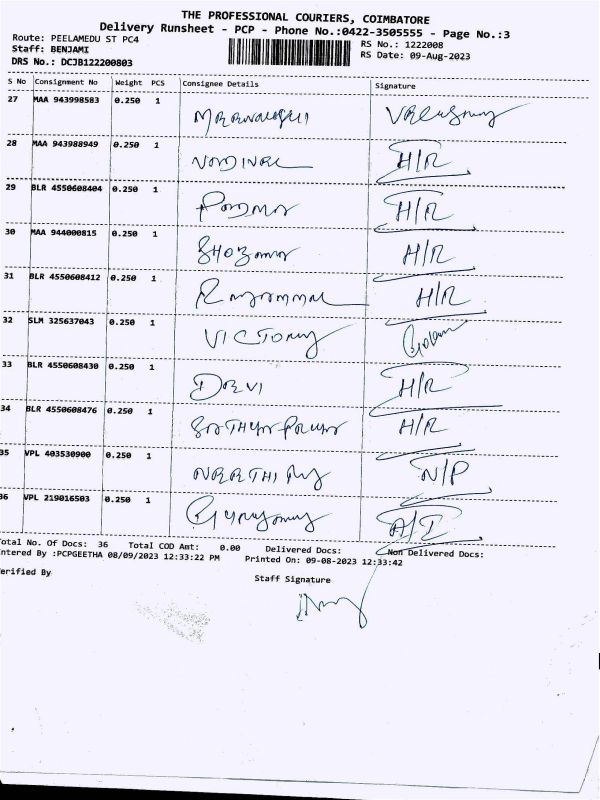 THE PROFESSIONAL COURIERS, COIMBATORE
Delivery Runsheet - PCP - Phone No.:0422-3505555 - Page No.:3
Route: PEELAMEDU ST PC4 RS No.: 1222008
Staff: BENJAMI RS Date: 09-Aug-2023
DRS No.: DCJB122200803
S No Consignment No Weight PCS Consignee Details Signature
27 MAA 943998583 0.250 1
28 MAA 943988949 0.250 1 H/R
29 BLR 4550608404 0.250 1 H/R
30 MAA 944000815 0.250 1 H/R
31 BLR 4550608412 0.250 1 H/R
32 SLM 325637043 0.250 1 VICTORY
33 BLR 4550608430 0.250 1 DEVI H/R
34 BLR 4550608476 0.250 1 H/R
35 VPL 403530900 0.250 1 N/P
36 VPL 219016503 0.250 1 A/I
Total No. Of Docs: 36 Total COD Amt: 0.00 Delivered Docs: Non Delivered Docs:
Entered By :PCPGEETHA 08/09/2023 12:33:22 PM Printed On: 09-08-2023 12:33:42
Verified By Staff Signature